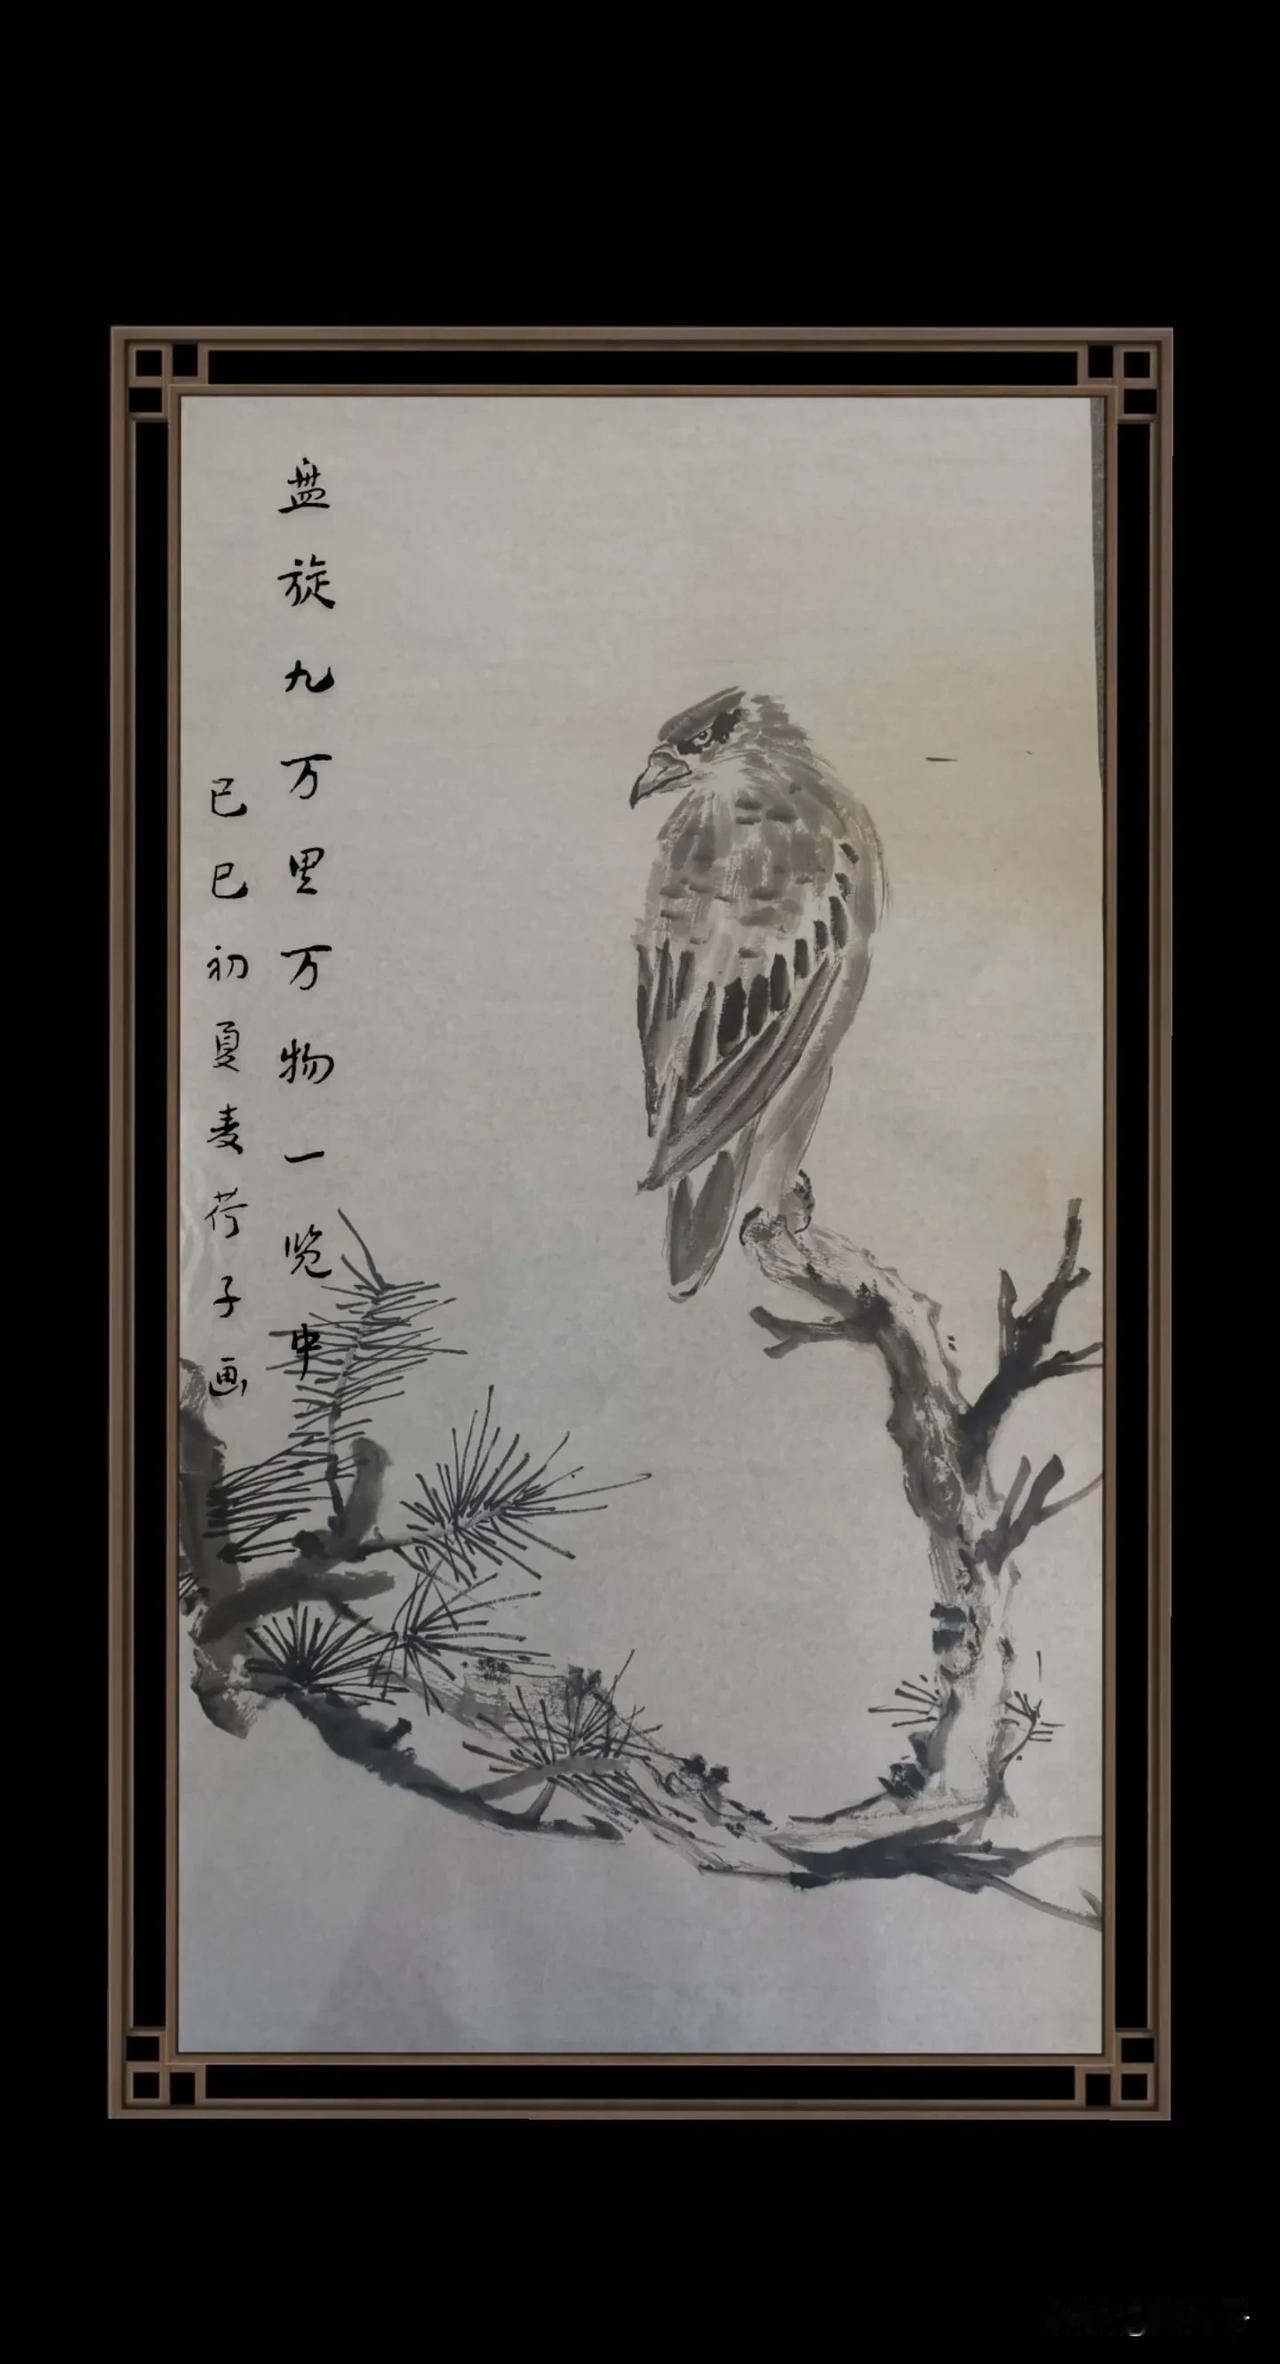 盘旋九万里万物一览中
已巳初夏麦荷子画